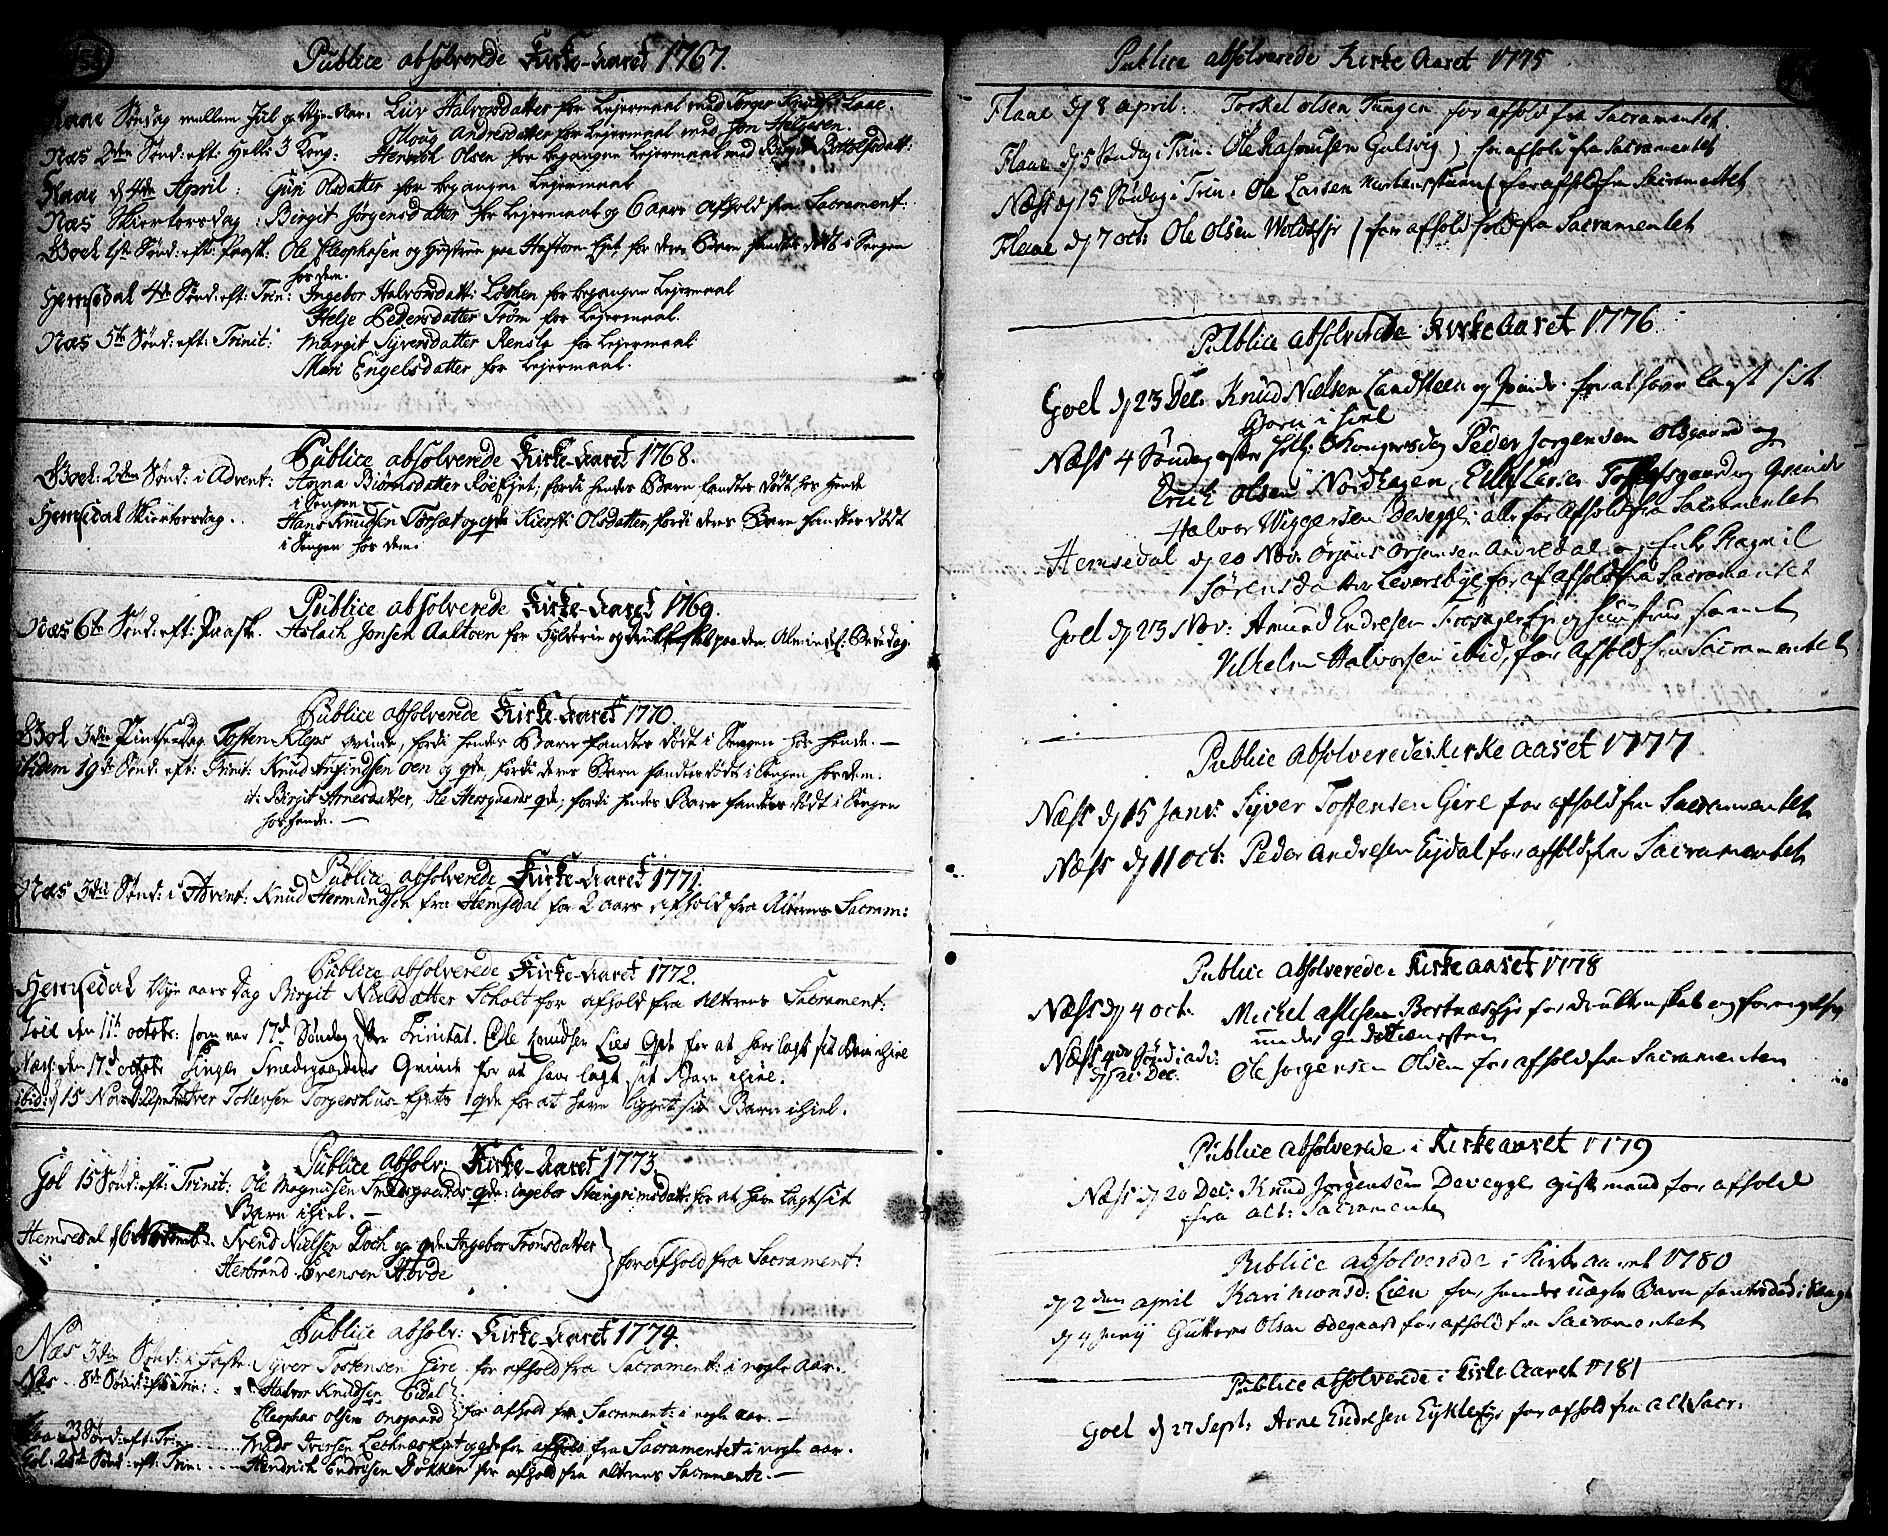 Publice absolverede Kirke-Aaret 1767.
Flaae Søndag mellem Jul og Nye-Aar: Liv Halvorsdatter for Lejermaal med Torger Knuds: Laae.
Olloug Andresdatter for Lejermaal med Jon Helgesen.
Næs 2den Sønd: eft: Hell: 3 Kong: Henrich Olsen for begangen Lejermaal med Birgit Botolfsdatt:
Flaae d. 4de April: Guri Olsdatter for begangen Lejermaal
Næs Skiertorsdag: Birgit Jørgensdatter for Lejermaal og 6 aars Afhold fra Sacrament:
Goel 1ste Sønd: eft: Paask: Ole Eleophasen og Hustrue paa Haftorn Ejet, for deres Barn fandtes dødt i Sengen
hos dem.
Hemsedal 4de Sønd: eft: Trin: Ingebor Halvorsdatt: Løken for begangen Lejermaal
Helje Pedersdatter Trøm for Lejermaal.
Næs 5te Sønd: eft: Trinit: Margit Sjversdatter Rensle for Lejermaal
Mari Engelsdatter for Lejermaal.
Publice absolverede Kirke-Aaret 1768.
Goel: 2den Sønd: i Advent: Aagna Biørnsdatter Roe Ejet, fordi hendes Barn fandtes dødt hos hende
i Sengen
Hemsedal Skiertorsdag. Hans Knudsen Torset og qde Kiersti Olsdatter, fordi deres Barn fandtes dødt
i Sengen hos dem.
Publice absolverede Kirke-Aaret 1769.
Næs 6te Sønd: eft: Paask. Aslach Jonsen Aaltoen for Sylderie og Drukkenskab paa den Almindel: Bededag.
Publice absolverede Kirke-Aaret 1770.
Gol 3die Pintsedag Tosten Kleps qvinde, fordi hendes Barn fandtes dødt i Sengen hos hende. —
ibidem 19de Sønd: eft: Trinit: Knud Arfindsen Oen og qde, fordi deres Barn fandtes dødt i Sengen hos dem.
it: Birgit Arnesdatter, Ole Hersgaards qde, fordi hendes Barn fandtes dødt i Sengen
hos hende. —
Publice absolverede Kirke-Aaret 1771.
Næs 3die Sønd: i Advent: Knud Hermundsen fra Hemsedal for 2 aars Afhold fra Alterens Sacram:
Publice absolverede Kirke-Aaret 1772.
Hemsedal Nye aars Dag Birgit Nielsdatter Scholt for afhold fra Alterens Sacrament:
den 11te octobr: som var 17de Søndag efter Trinitat. Ole Knudsen Lies Qde for at have lagt sit Barn ihiel
Næss: den 17de octobr Engle Smedsgaardens Qvinde for at have lagt sit Barn ihiel.
ibid: d 15 Nov: Iver Tollevsen Torgershus Ejets qde for at have ligget sit Barn ihiel.
Publice absolv: Kirke-Aaret 1773.
Gol 15 Sønd: eft: Trinit: Ole Magnusen Smedsgaards qde: Ingebor Steengrimsdatt: for at have lagt sit
Barn ihiel. —
Hemsedal Svend Nielsen Doch og qde Ingebor Tronsdatter
Herbrand Svensen Ulvde } for afhold fra Sacrament:
Publice absolv: Kirke-Aaret 1774.
Næs 3die Sønd: i Faste Sjver Tostensen Gire for afhold fra Sacrament: i nogle Aar.
Næs 8de Sønd: eft: Trin: Halvor Knudsen Eidal
Eleophas Olsen onsgaard } for afhold fra Sacrament: i nogle aar. —
Sønd: eft: Trin: Mads Iversen Leknæs Ejet og qde for afhold fra Sacramentet i nogle aar.
Gol. 25de Sønd: eft: Trin: Hendrich Endresen Dokken for afhold fra alterens Sacramente. —
Publice absolverede Kirke Aaret 1775
Flaae d 8 april: Torkel olsen Tungen for afhold fra Sacramentet.
Flaae d 5 Søndag i Trin: Ole Rasmusen Gulsvig) for afhold fra Sacramentet
Næss d 15 Søndag i Trin: Ole Larsen for afhold fra Sacramentet
Flaae d 7 oct: Ole Olsen Woldsejr / for afhold fra Sacramentet
Publice absolverede Kirke Aaret 1776
Goel d 23 Dec: Knud Nielsen Landsteen og Qvinde. for at have lagt sit
Barn ihiel
Næss 4 Søndag efter Hell: 3 Kongersdag Peder Jorgensen olsgaard og
Erich olsen Nordhagen, Elling Larsen Tollefsgaard og Qvinde
Halvor Wiggersen Devegge: alle for Afhold fra Sacramentet
Hemsedal d 20 Nov: Ørjans Orjansen og Enke Ragnil
Sørensdatter for af afhold fra Sacramentet
Goel d 23 Nov: Amund Endresen og Hustrue samt
Vilhelm Halvorsen ibid, for Afhold fra Sacramentet
Publice absolverede i Kirke aaret 1777
Næss d 15 Janv: Sjver Tostensen Gire for afhold fra Sacramentet
Næss d 11 oct: Peder Andresen Ejdal for afhold fra Sacramentet
Publice absolverede Kirke aaret 1778
Næss d 4 oct: Michel for drukkenskab og forargelse
under gudstienesten
Næss 4de Sønd: i adv: Ole Jorgensen Olsen for afhold fra Sacramenten
d 21 Dec:
Publice absolverede i Kirke aaret 1779
Næss d 20 Dec: Knud Jorgensen Devegge gift mand for afhold
fra alt: Sacramentet
Publice absolverede i Kirke aaret 1780
d 2 den april Kari Monsd: Lien for hendes uægte Barn fantes død i Seng
d 4 Junij Guttorm Olsen Ødegaard for afhold fra Sacramentet
Publice absolverede i Kirke Aaret 1781
Goel d 27 Sept: Arne Endresen Eyklejr for afhold fra alt: Sacr: